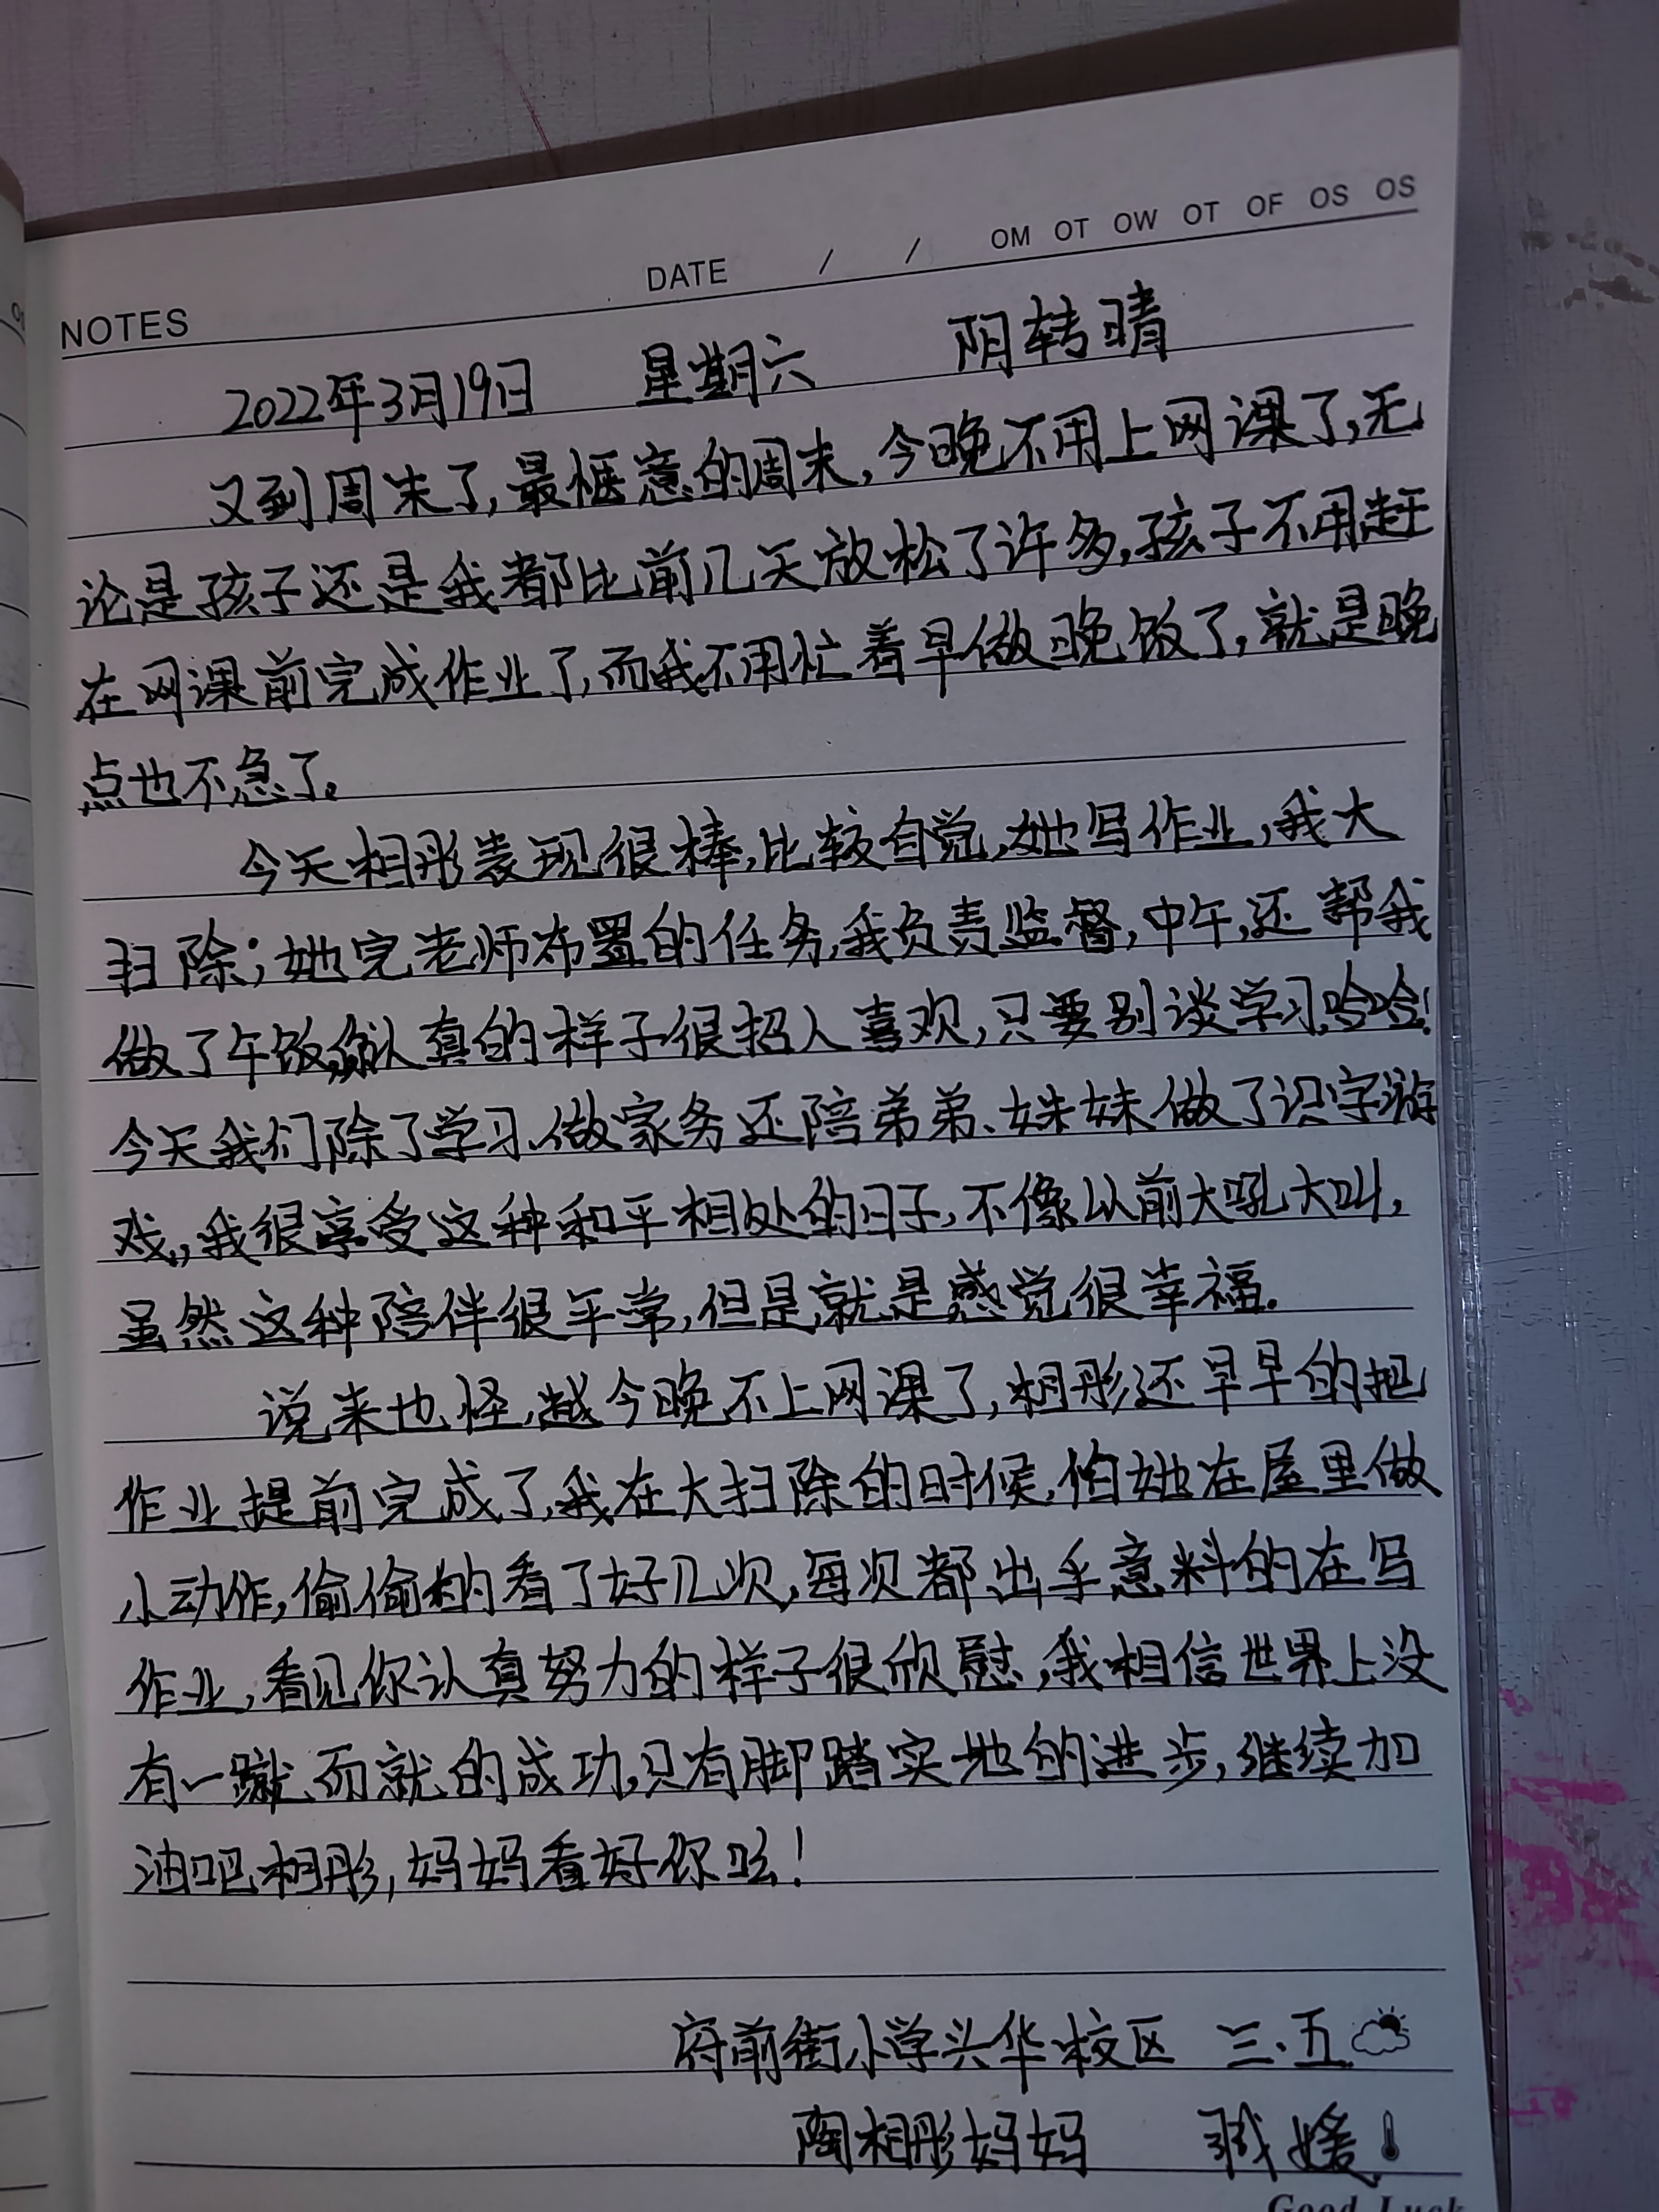 DATE / / OM OT OW OT OF OS OS
NOTES
2022年3月19日 星期六 阴转晴
又到周末了,最惬意的周末,今晚不用上网课了,无
论是孩子还是我都比前几天放松了许多,孩子不用赶
在网课前完成作业了,而我不用忙着早做晚饭了,就是晚
点也不急了。
今天相彤表现很棒,比较自觉,她写作业,我大
扫除;她完老师布置的任务,我负责监督,中午,还帮我
做了午饭,认真的样子很招人喜欢,只要别谈学习,哈哈!
今天我们除了学习、做家务还陪弟弟、妹妹做了识字游
戏,我很享受这种和平相处的日子,不像以前大吼大叫,
虽然这种陪伴很平常,但是就是感觉很幸福.
说来也怪,越今晚不上网课了,相彤还早早的把
作业提前完成了,我在大扫除的时候,怕她在屋里做
小动作,偷偷的看了好几次,每次都出乎意料的在写
作业,看见你认真努力的样子很欣慰,我相信世界上没
有一蹴而就的成功,只有脚踏实地的进步,继续加
油吧相彤,妈妈看好你呦!
府前街小学兴华校区 三.五
陶相彤妈妈 媛
Good Luck